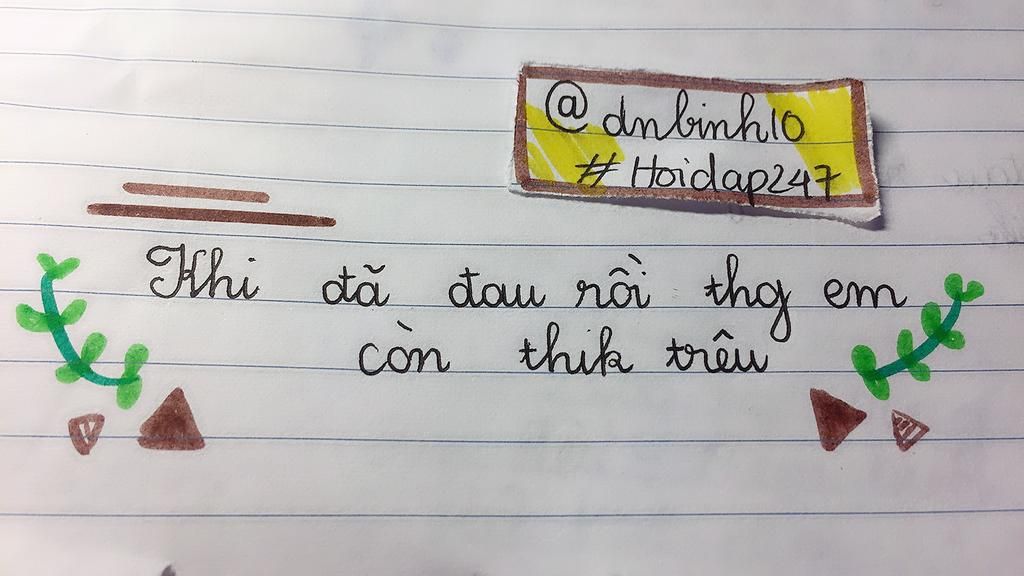 @dnbinh10
#Hoidap247
Khi đã đau rồi thg em
còn thik trêu